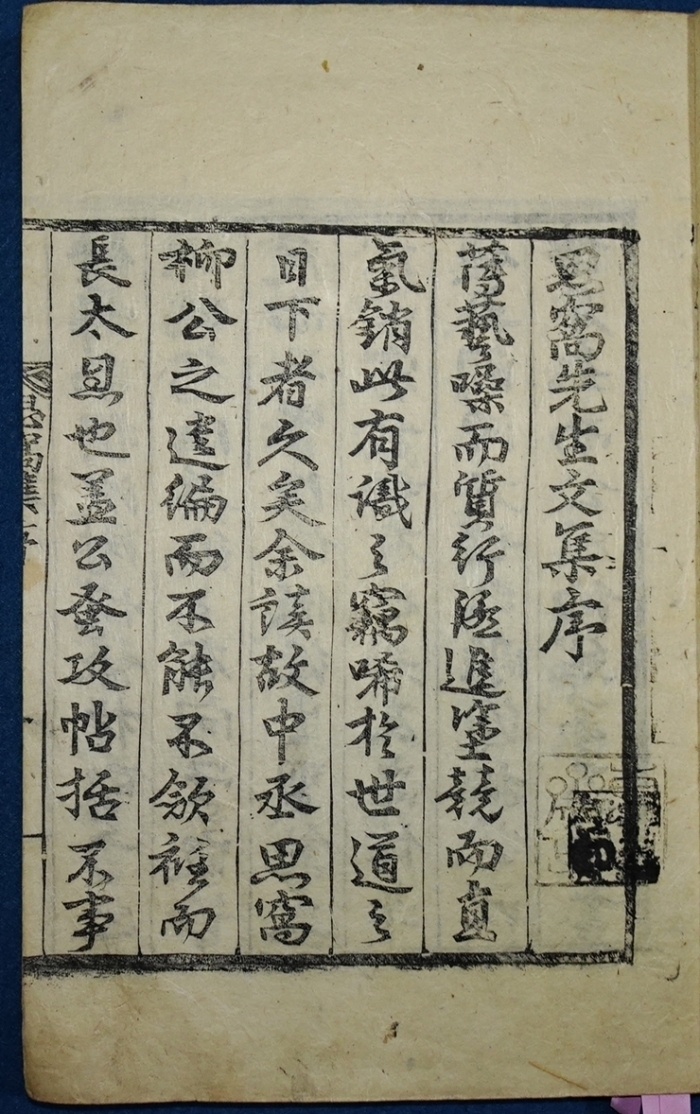 思窩先生文集序
藝噪而質行溼進塗競而直
氣銷此有識之竊唏於世道之
日下者久矣余讀故中丞思窩
柳公之遺編而不能不斂衽而
長太息也盖公蚤攻帖括不事
思窩集序